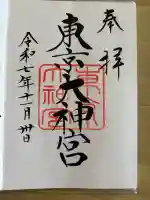 奉拝
東京大神宮
東京大神宮
令和七年十一月卅日